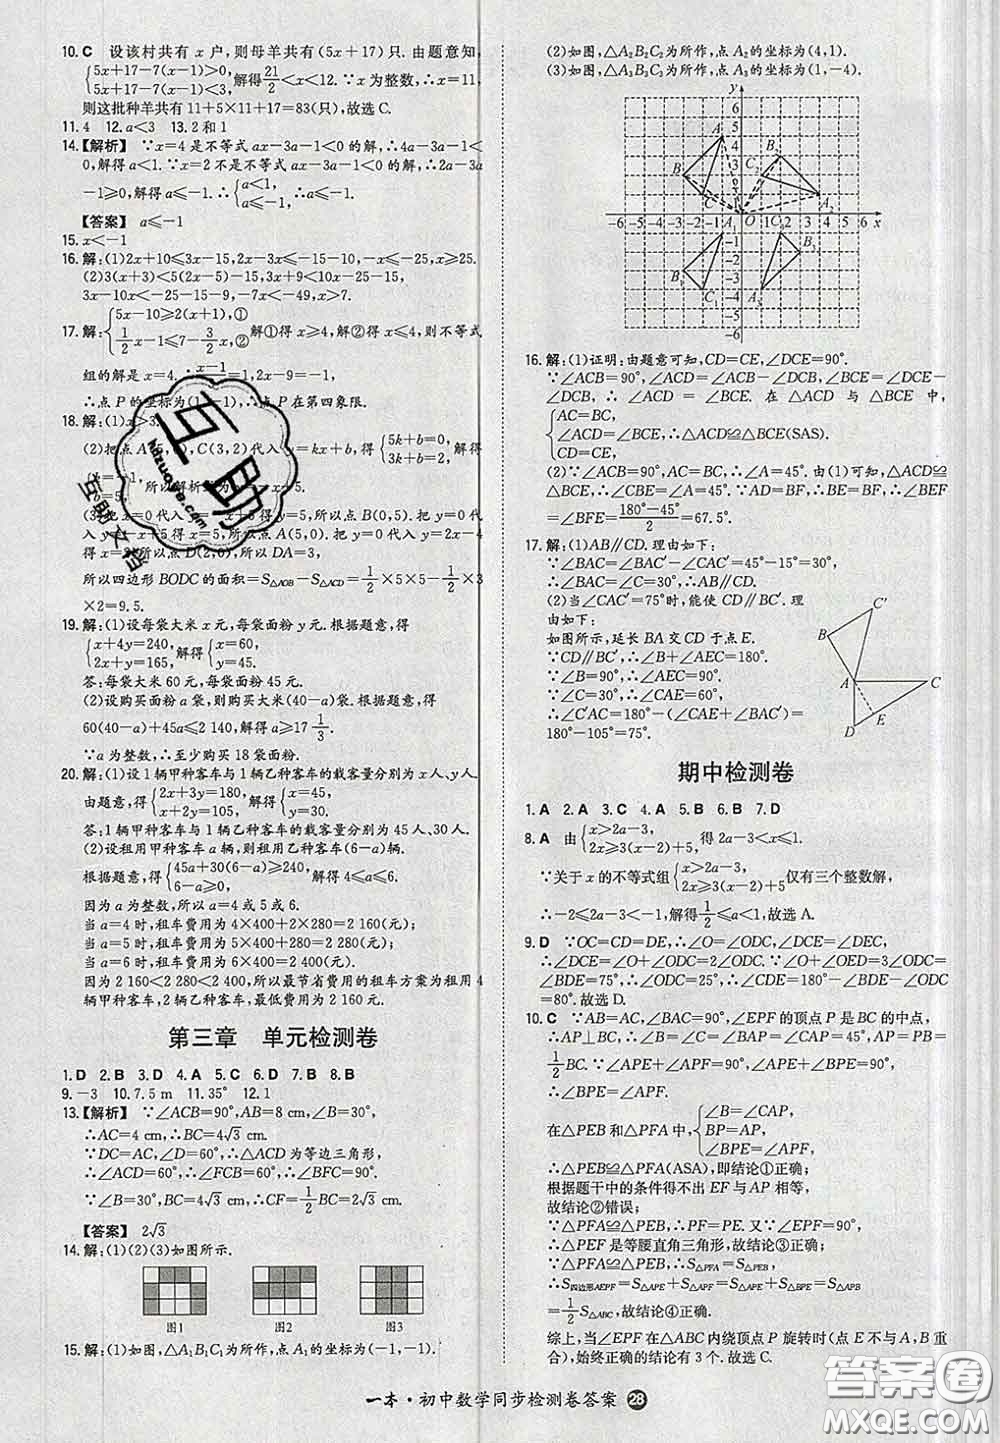 10. C 设该村共有 x 户,则母羊共有(5x+17)只.由题意知,
{5x+17-7(x-1)>0,
5x+17-7(x-1)<3, 解得21/2<x<12.∵x为整数,∴x=11,
则这批种羊共有11+5×11+17=83(只),故选C.
11. 4 12. a<3 13. 2和1
14.【解析】 ∵x=4是不等式ax-3a-1<0的解,∴4a-3a-1<
0,解得a<1.∵x=2不是不等式ax-3a-1<0的解,∴2a-3a
-1≥0,解得a≤-1.∴{a<1, a≤-1. ∴a≤-1.
【答案】 a≤-1
15. x<-1
16. 解:(1)2x+10≤3x-15,2x-3x≤-15-10,-x≤-25,x≥25.
(2)3(x-3)<5(2x-5)-15,3x-9<10x-25-15,
3x-10x<-25-15+9,-7x<-31,x>7.
17. 解:{5x-10≥2(x+1),①
1/2x-1≤7-3/2x,② 解①得x≥4,解②得x≤4,则不等式
组的解是x=4,∴ =1,2x-9=-1,
∴点P的坐标为(1,-1),∴点P在第四象限.
18. 解:(1)x>3
(2)把点A(5,0),C(3,2)代入y=kx+b,得{5k+b=0,
3k+b=2.
k=-1, 所以解析式为y=-x+5.
(3)把x=0代入y=-x+5得y=5,所以点B(0,5).把y=0代
入y=-x+5得x=5,所以点A(5,0),把y=0代入y=2x-4
得x=2,所以点D(2,0),所以DA=3,
所以四边形BODC的面积=S△AOB-S△ACD=1/2×5×5-1/2×3
×2=9.5.
19. 解:(1)设每袋大米x元,每袋面粉y元.根据题意,得
{x+4y=240,
2x+y=165, 解得{x=60,
y=45.
答:每袋大米60元,每袋面粉45元.
(2)设购买面粉a袋,则购买大米(40-a)袋.根据题意,得
60(40-a)+45a≤2 140,解得a≥17 1/3.
∵a为整数,∴至少购买18袋面粉.
20. 解:(1)设1辆甲种客车与1辆乙种客车的载客量分别为x人、y人.
由题意,得{2x+3y=180,
x+2y=105, 解得{x=45,
y=30.
答:1辆甲种客车与1辆乙种客车的载客量分别为45人、30人.
(2)设租用甲种客车a辆,则租用乙种客车(6-a)辆.
根据题意,得{45a+30(6-a)≥240,
6-a≥0, 解得4≤a≤6.
因为a为整数,所以a=4或5或6.
当a=4时,租车费用为4×400+2×280=2 160(元);
当a=5时,租车费用为5×400+280=2 280(元);
当a=6时,租车费用为6×400=2 400(元).
因为2 160<2 280<2 400,所以最节省费用的租车方案为租用4
辆甲种客车,2辆乙种客车,最低费用为2 160元.
第三章 单元检测卷
1. D 2. B 3. D 4. A 5. C 6. D 7. B 8. B
9. -3 10. 7.5 m 11. 35° 12. 1
13.【解析】 ∵∠ACB=90°,AB=8 cm,∠B=30°,
∴AC=4 cm,∴BC=4√3 cm.
∵DC=AC,∠D=60°,∴△ACD为等边三角形,
∴∠ACD=60°,∴∠FCB=60°,∴∠BFC=90°.
∵∠B=30°,BC=4√3 cm,∴CF=1/2BC=2√3 cm.
【答案】 2√3
14. 解:(1)(2)(3)如图所示.
图1 图2 图3
15. 解:(1)如图,△A1B1C1为所作,点A1的坐标为(-1,-1).
(2)如图,△A2B2C2为所作,点A2的坐标为(4,1).
(3)如图,△A3B3C3为所作,点A3的坐标为(1,-4).
16. 解:(1)证明:由题意可知,CD=CE,∠DCE=90°.
∵∠ACB=90°,∠ACD=∠ACB-∠DCB,∠BCE=∠DCE-
∠DCB,∴∠ACD=∠BCE.在△ACD与△BCE中,
{AC=BC,
∠ACD=∠BCE,∴△ACD≌△BCE(SAS).
CD=CE,
(2)∵∠ACB=90°,AC=BC,∴∠A=45°.由(1)可知,△ACD≌
△BCE,∴∠CBE=∠A=45°.∵AD=BF,∴BE=BF,∴∠BEF
=∠BFE=(180°-45°)/2=67.5°.
17. 解:(1)AB∥CD.理由如下:
∵∠BAC=∠BAC′-∠CAC′=45°-15°=30°,
∴∠BAC=∠C=30°,∴AB∥CD.
(2)当∠CAC′=75°时,能使CD∥BC′.理
由如下:
如图所示,延长BA交CD于点E.
∵CD∥BC′,∴∠B+∠AEC=180°.
∵∠B=90°,∴∠AEC=90°.
∵∠C=30°,∴∠CAE=60°,
∴∠C′AC=180°-(∠CAE+∠BAC′)=
180°-105°=75°.
期中检测卷
1. A 2. A 3. C 4. A 5. B 6. B 7. D
8. A 由{x>2a-3,
2x≥3(x-2)+5, 得2a-3<x≤1.
∵关于x的不等式组{x>2a-3,
2x≥3(x-2)+5 仅有三个整数解,
∴-2≤2a-3<-1,解得1/2≤a<1,故选A.
9. D ∵OC=CD=DE,∴∠O=∠ODC,∠DCE=∠DEC,
∴∠DCE=∠O+∠ODC=2∠ODC.∵∠O+∠OED=3∠ODC
=∠BDE=75°,∴∠ODC=25°,∴∠CDE=180°-∠BDE-∠ODC
=80°.故选D.
10. C ∵AB=AC,∠BAC=90°,∠EPF的顶点P是BC的中点,
∴AP⊥BC,AP=1/2BC=PB,∠B=∠CAP=45°.
∵∠APF+∠APE=90°,∠APE+∠BPE=90°,
∴∠BPE=∠APF.
在△PEB和△PFA中,{∠B=∠CAP,
BP=AP,
∠BPE=∠APF,
∴△PEB≌△PFA(ASA),即结论①正确;
根据题干中的条件得不出EF与AP相等,
故结论②错误;
∵△PFA≌△PEB,∴PF=PE.又∵∠EPF=90°,
∴△PEF是等腰直角三角形,故结论③正确;
∵△PFA≌△PEB,∴S△PFA=S△PEB,
∴S四边形AEPF=S△APE+S△APF=S△APE+S△BPE=S△APB
=1/2S△ABC,故结论④正确;
综上,当∠EPF在△ABC内绕顶点P旋转时(点E不与A、B重
合),始终正确的结论有3个.故选C.
一本·初中数学同步检测卷答案 28
互助
Mhzuoye.com
互助文档
答案圈
MXQE.COM